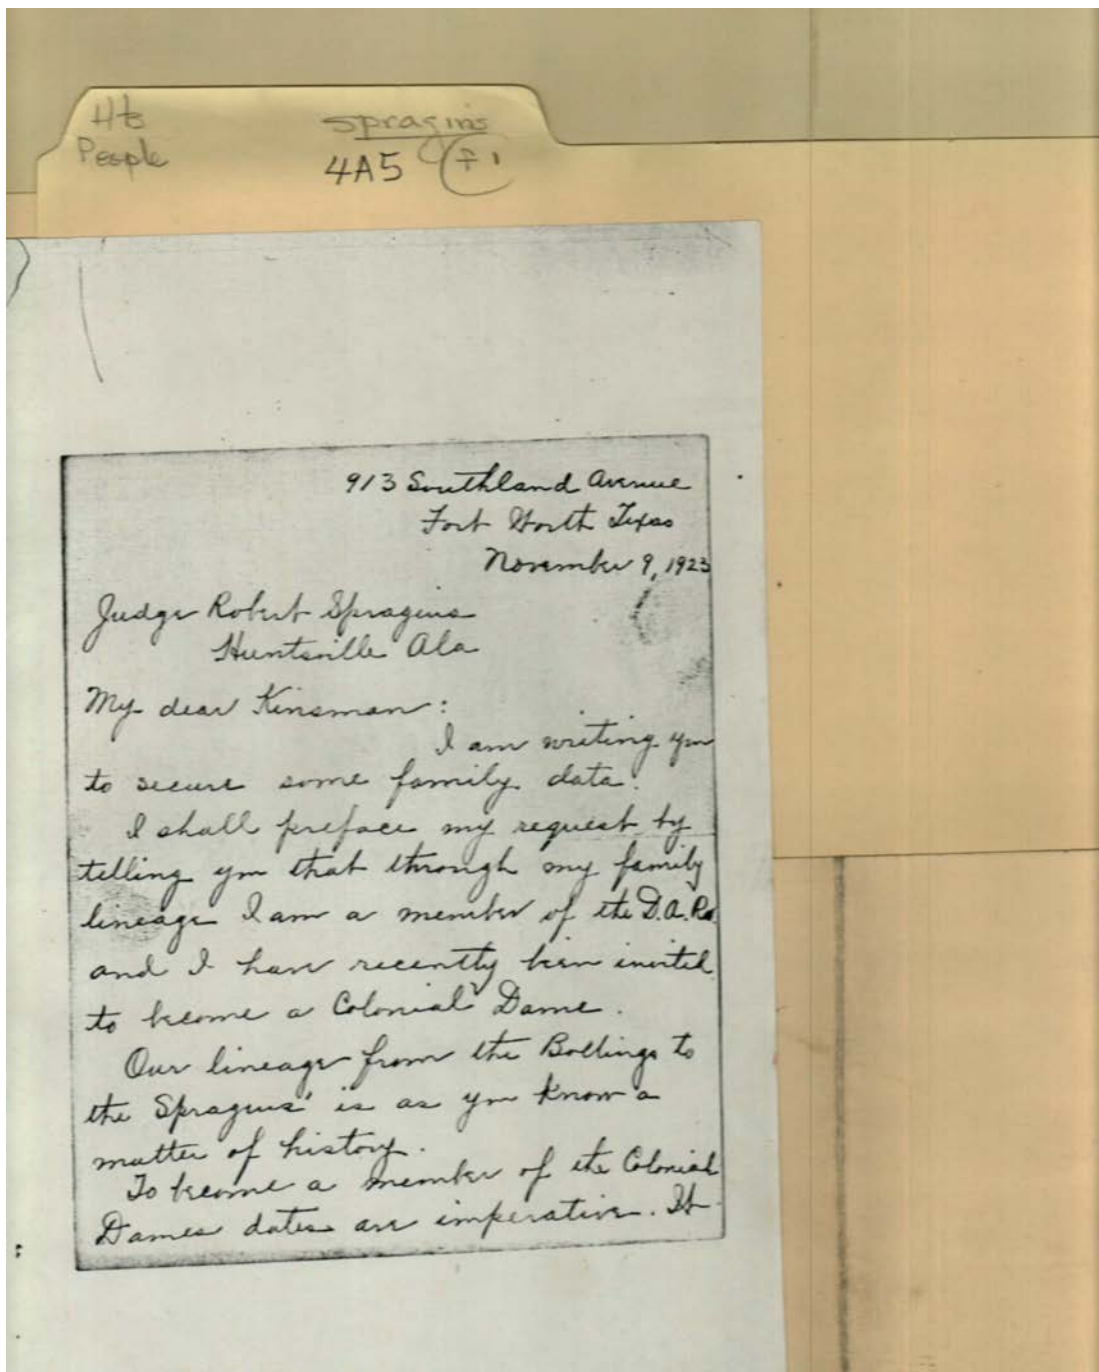 Hts
People
Spragins
4A5 F1
913 Southland Avenue
Fort Worth Texas
November 9, 1923
Judge Robert Spragins
Huntsville Ala
My dear Kinsman:
I am writing you
to secure some family data.
I shall preface my request by
telling you that through my family
lineage I am a member of the D.A.R.
and I have recently been invited
to become a Colonial Dame.
Our lineage from the Bollings to
the Spragins' is as you know a
matter of history.
To become a member of the Colonial
Dames dates are imperative. It